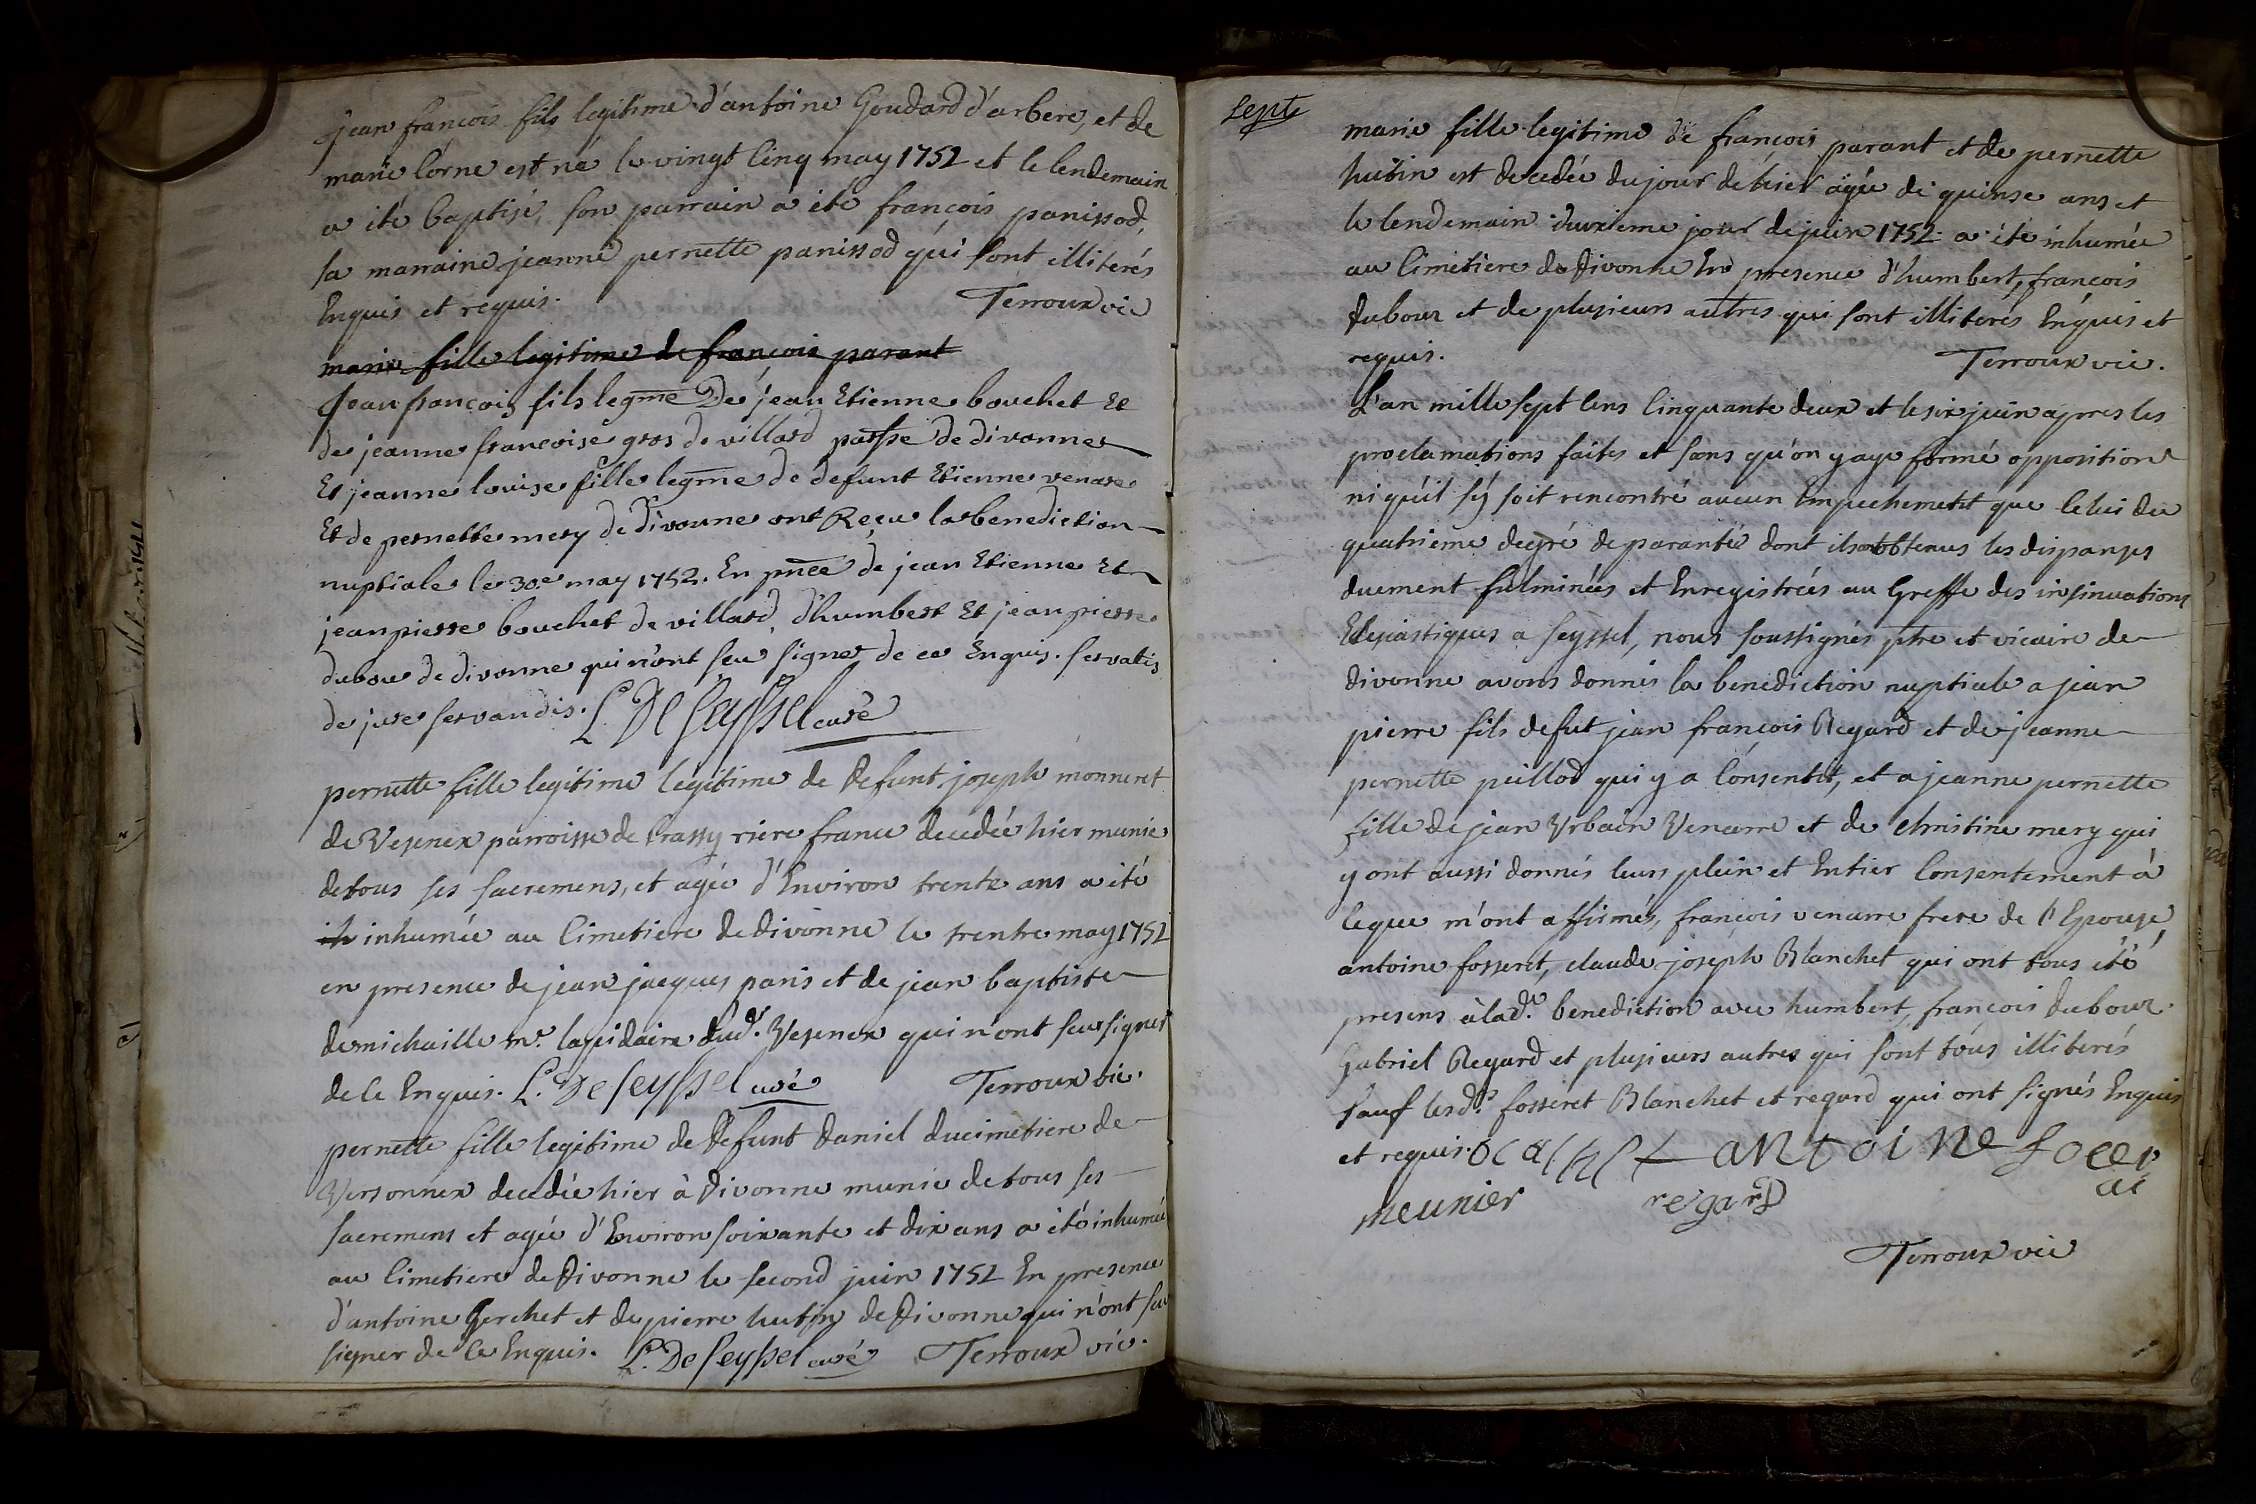 jean françois fils legitime d'antoine Goudard d'arbere, et de
marie lorne est né le vingt cinq may 1752 et le lendemain
a été baptisé, son parrain a été françois panissod,
sa marraine jeanne pernette panissod qui sont illiterés
Enquis et requis. Terroux vic
marie fille legitime de françois parant
Jean françois fils legme De jean Etienne bouchet Et
de jeanne françoise gros de villard parsse de divonne
Et jeanne louise fille legme de defunt Etienne venare
Et de pernette mery de divonne ont Reçu la benediction
nuptiale le 30e may 1752. En pnce de jean Etienne Et
jean pierre bouchet de villard, d'humbert Et jean pierre
dubou de divonne qui n'ont seu signer de ce Enquis. servatis
de jure servandis. L. De Seyssel curé
pernette fille legitime legitime de defunt joseph monneret
de Vesenex parroisse de Crassy riere france decedée hier munie
de tous ses sacremens, et agée d'Environ trente ans a été
ih inhumée au Cimetiere de divonne le trente may 1752
en presence de jean jacques paris et de jean baptiste
demichaille me. lapidaire dud. Vesenex qui n'ont seu signer
de ce Enquis. L. De Seyssel curé Terroux vic.
pernette fille legitime de defunt daniel ducimetiere de
Versonnex decedée hier à divonne munie de tous ses
sacremens et agée d'Environ soixante et dix ans a été inhumée
au Cimetiere de divonne le second juin 1752 En presence
d'antoine Gerchet et de pierre hutin de divonne qui n'ont seu
signer de ce Enquis. L. De Seyssel curé Terroux vic.
sept
marie fille legitime de françois parant et de pernette
hutin est decedée du jour de hier agée de quinse ans et
le lendemain duxieme jour de juin 1752 a été inhumée
au Cimetiere de divonne En presence d'humbert, françois
dubour et de plusieurs autres qui sont illiterés Enquis et
requis. Terroux vic.
L'an mille sept Cens Cinquante deux et le six juin apres les
proclamations faites et sans qu'on y aye formé opposition
ni qu'il s'y soit rencontré aucun Empechement que celui du
quatrieme degré de parantée dont ils ont obtenus les dispanses
duement fulminées et Enregistrées au Greffe des insinuations
Eclesiastiques a seyssel, nous soussignés ptre et vicaire de
divonne avons donnés la benediction nuptiale a jean
pierre fils defut jean françois Regard et de jeanne
pernette peillod qui y a Consentit, et a jeanne pernette
fille de jean Urbain Venarre et de christine mery qui
y ont aussi donnés leurs plein et Entier Consentement à
ceque m'ont affirmés, françois venarre frere de l'Epouse,
antoine fosseret, claude joseph Blanchet qui ont tous été
presens à lad. benediction avec humbert, françois dubour
Gabriel Regard et plusieurs autres qui sont tous illiterés
sauf lesd. fosseret Blanchet et regard qui ont signés Enquis
et requis. antoine
meunier regard
Terroux vic